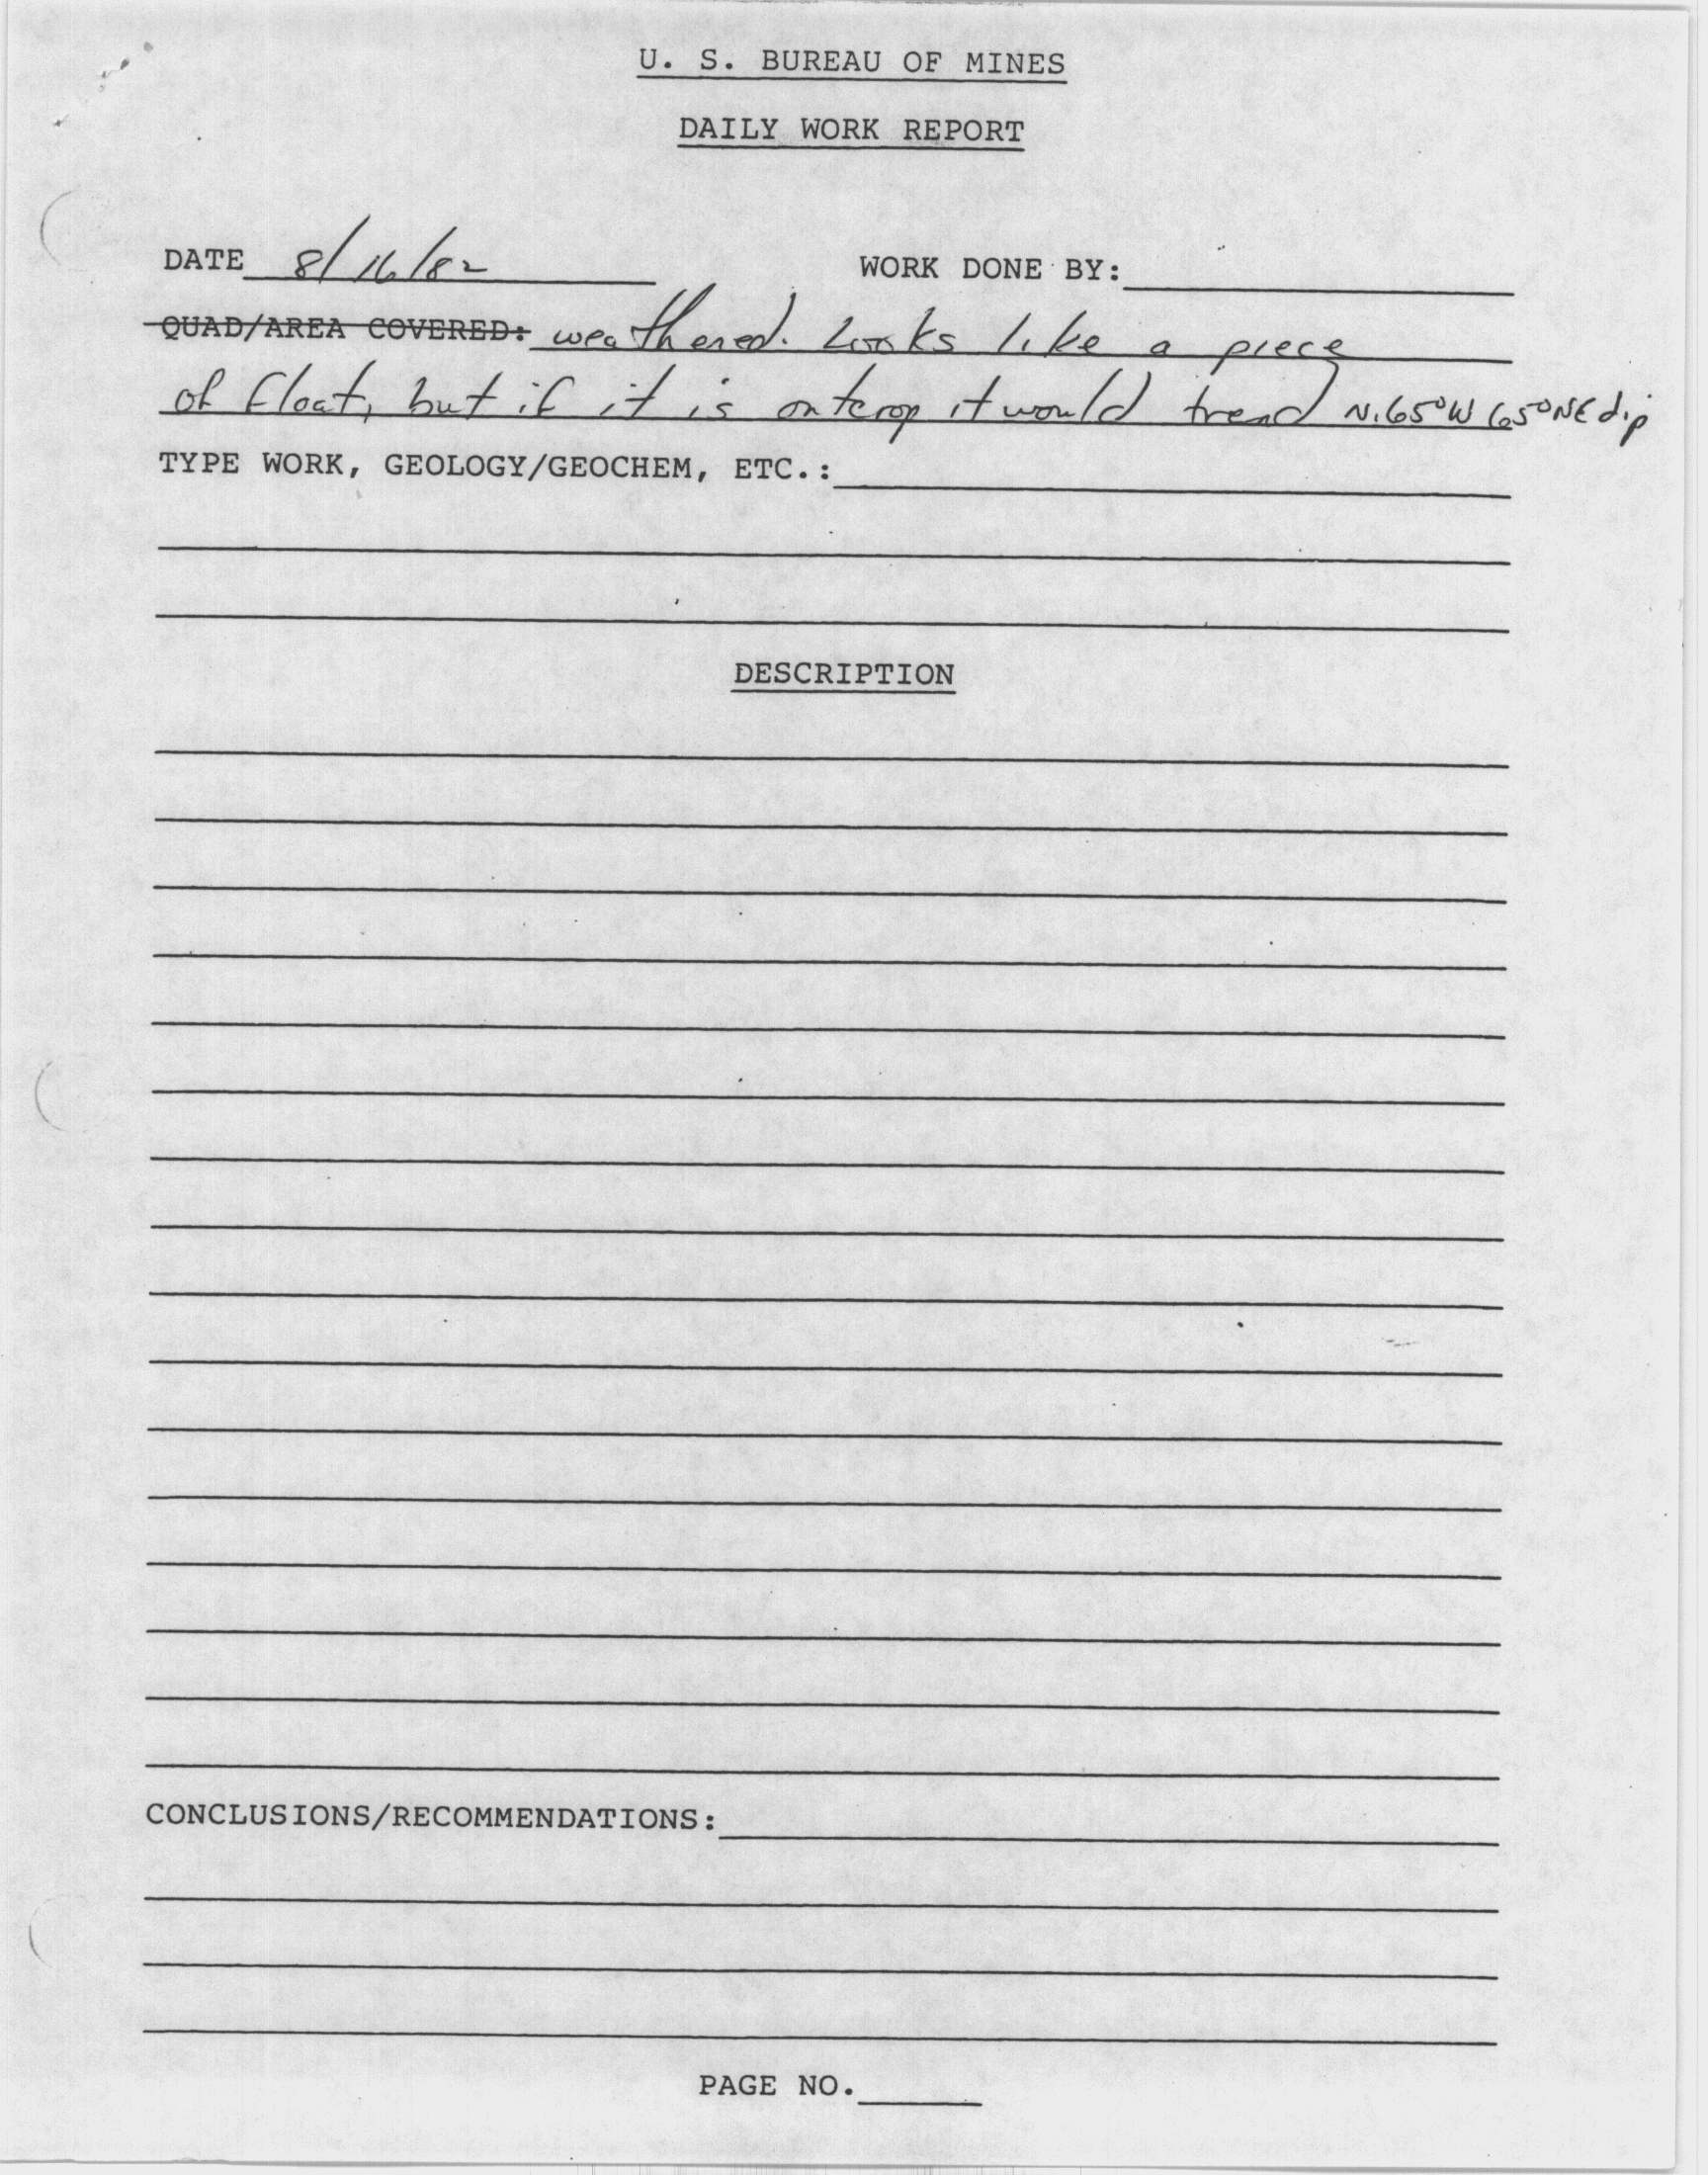 U. S. BUREAU OF MINES
DAILY WORK REPORT
DATE 8/16/82 WORK DONE BY:
QUAD/AREA COVERED: weathered. Looks like a piece
of float, but if it is outcrop it would trend N.65°W 65°NE dip
TYPE WORK, GEOLOGY/GEOCHEM, ETC.:
DESCRIPTION
CONCLUSIONS/RECOMMENDATIONS:
PAGE NO.